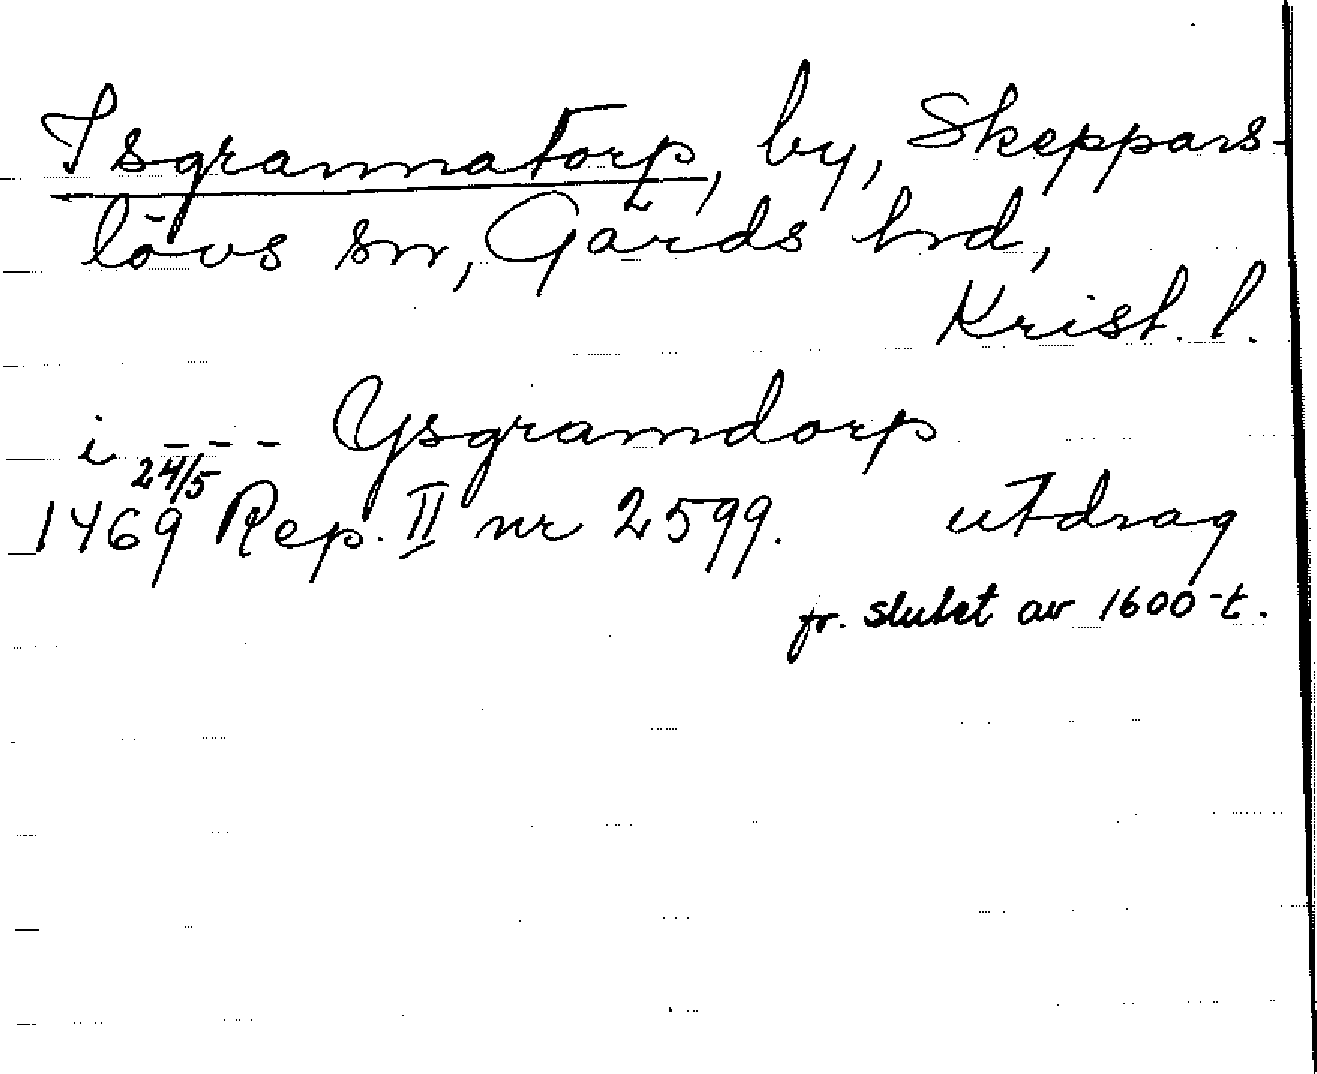 Isgrannatorp, by, Skeppars-
lövs sn, Gärds hrd,
Krist. l.
i --- Ysgramdorp
24/5
1469 Rep. II nr 2599. utdrag
fr. slutet av 1600-t.